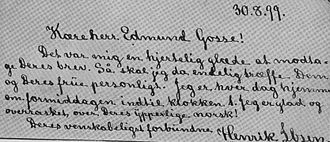 30.8.99.
Kære herr Edmund Gosse!
Det var mig en hjertelig glæde at modta-
ge Deres brev. Så skal jeg da endelig træffe Dem
og Deres frue personligt. Jeg er hver dag hjemme
om formiddagen indtil klokken 1. Jeg er glad og
overrasket over Deres ypperlige norsk!
Deres venskabeligst forbundne
Henrik Ibsen